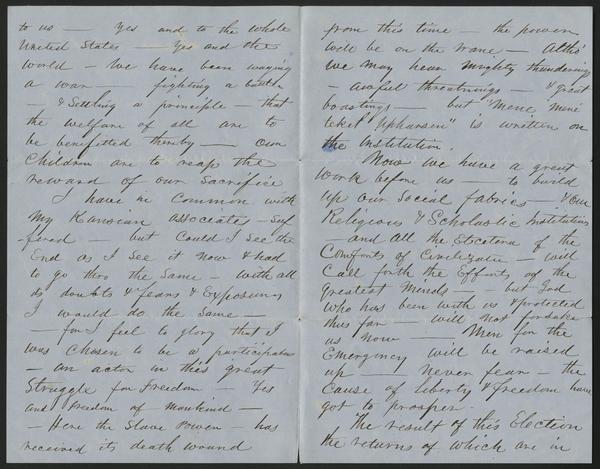 to us — Yes and to the whole
United States — Yes and the
world — We have been waging
a war — fighting a battle
— & Settling a principle — that
the welfare of all are to
be benefitted thereby — Our
Children are to reap the
reward of our Sacrifice
I have in Common with
my Kansian associates — suf
fered — but Could I see the
End as I see it now & had
to go thro the Same — with all
its doubts & fears & Exposures
I would do the Same —
— for I feel to glory that I
was Chosen to be a participator
— an actor in this great
Struggle for Freedom — Yes
and Freedom of Mankind —
— Here the Slave Power — has
received its death wound
from this time — the power
will be on the wane — Altho'
we may hear mighty thunderings
— awful threatnings — & great
boastings — but "Mene, mene
tekel Upharsen" is written on
the Institution.
Now we have a great
work before us — to build
up our Social fabrics — & our
Religious & Scholastic Institutions
— and all the Etcetera of the
Comforts of Civilization — will
Call forth the Efforts of the
greatest Minds — but God
who has been with us & protected
thus far — will not forsake
us now — Men for the
Emergency will be raised
up — never fear — the
Cause of liberty & freedom have
got to prosper.
The result of this Election
the returns of which are in